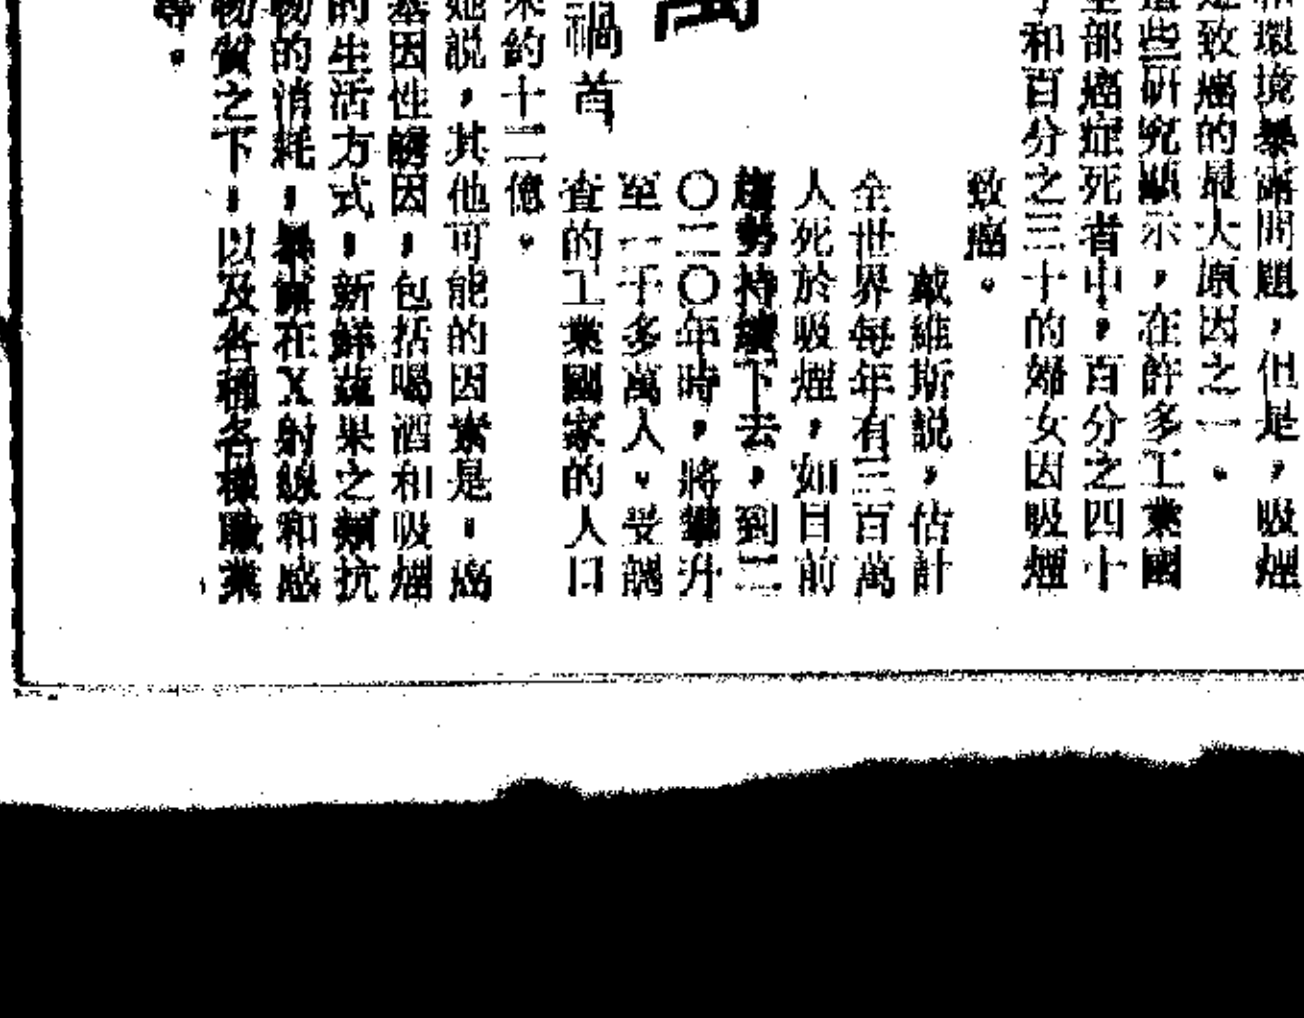 和環境暴露問題，但是，吸煙
是致癌的最大原因之一。
這些研究顯示，在許多工業國
全部癌症死者中，百分之四十
子和百分之三十的婦女因吸煙
致癌。
戴維斯說，估計
全世界每年有三百萬
人死於吸煙，如目前
趨勢持續下去，到二
〇二〇年時，將攀升
至一千多萬人。受調
查的工業國家的人口
萬
禍首
來約十二億。
她說，其他可能的因素是：癌
基因性誘因，包括喝酒和吸煙
的生活方式，新鮮蔬果之類抗
物的消耗，暴露在X射線和感
物質之下，以及各種各樣職業
等。